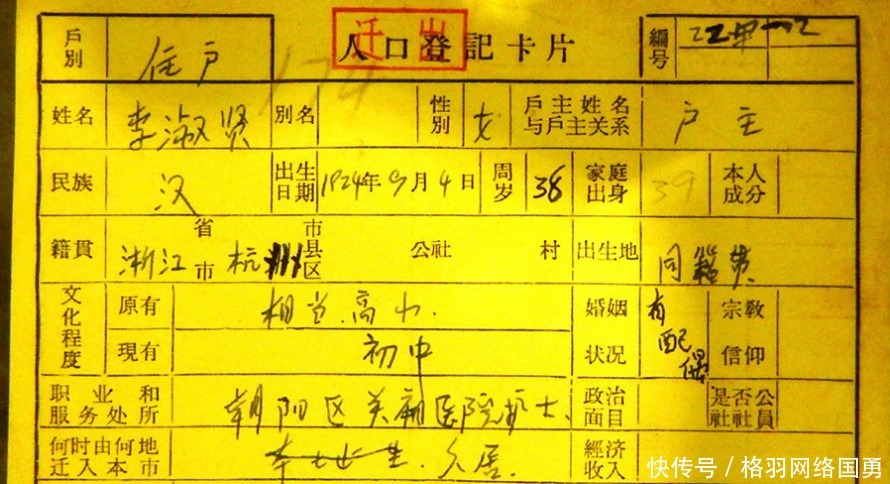 迁出
人口登記卡片
戶別 住戶 編号
姓名 李淑贤 別名 性別 女 戶主姓名与戶主关系 户主
民族 汉 出生日期 1924年9月4日 周岁 38 家庭出身 39 本人成分
籍貫 浙江 省市 杭州 市县区 公社 村 出生地 同籍贯
文化程度 原有 相当高小. 婚姻状况 有配偶 宗教信仰
現有 初中
职业和服务处所 朝阳区关厢医院护士. 政治面目 是否公社社員
何时由何地迁入本市 久居. 經济收入
快传号/格羽网络国勇